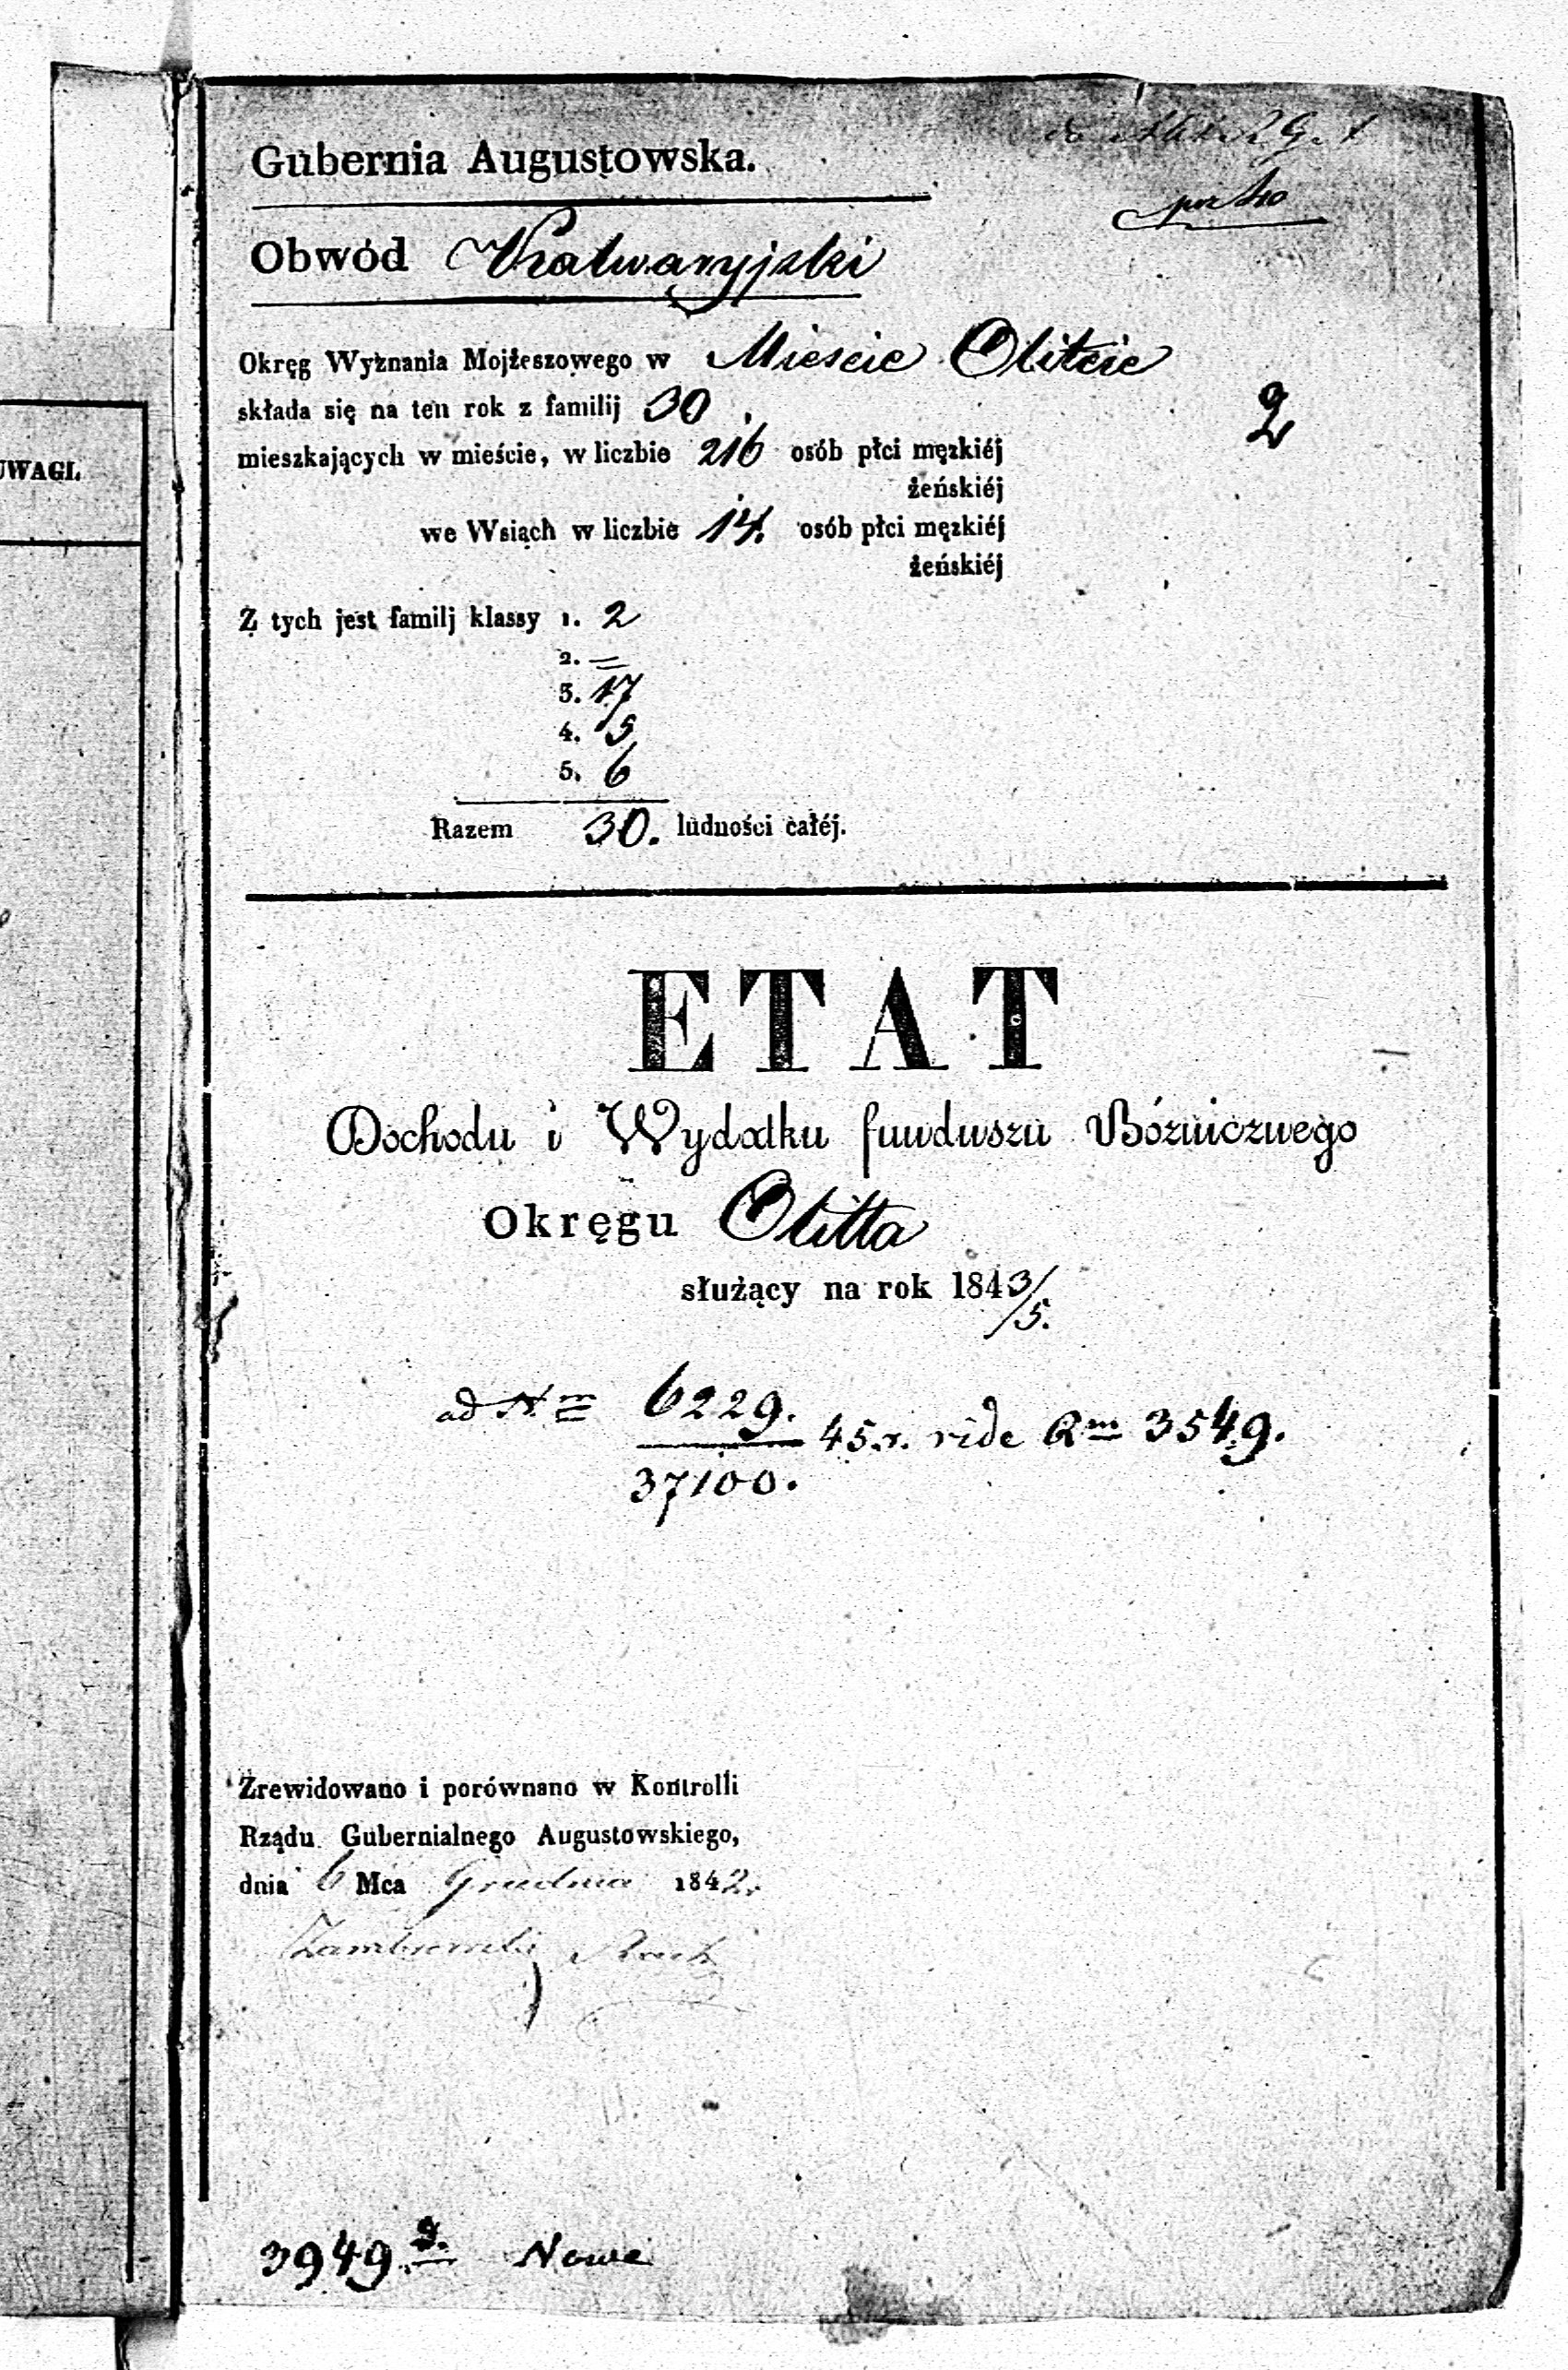 UWAGI.
Gubernia Augustowska.
Obwód Kalwaryjski
Okręg Wyznania Mojżeszowego w Mieście Olitcie
składa się na ten rok z familij 30.
2
mieszkających w mieście, w liczbie 216 osób płci męzkiéj
żeńskiéj
we Wsiach w liczbie 14. osób płci męzkiéj
żeńskiéj
Z tych jest familj klassy 1. 2
2. =
3. 17
4. 5
5. 6
Razem 30. ludności całéj.
ETAT
Dochodu i Wydatku funduszu Bóżnicznego
Okręgu Olitta
służący na rok 1843/5.
ad N 6229. 45.r. vide Rm 3549.
37100.
Zrewidowano i porównano w Kontrolli
Rządu Gubernialnego Augustowskiego,
dnia 6 Mca Grudnia 1842.
3949 Nowe